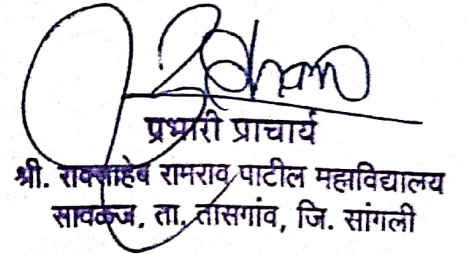 प्रभारी प्राचार्य
श्री. रावसाहेब रामराव पाटील महाविद्यालय
सावळज, ता. तासगांव, जि. सांगली